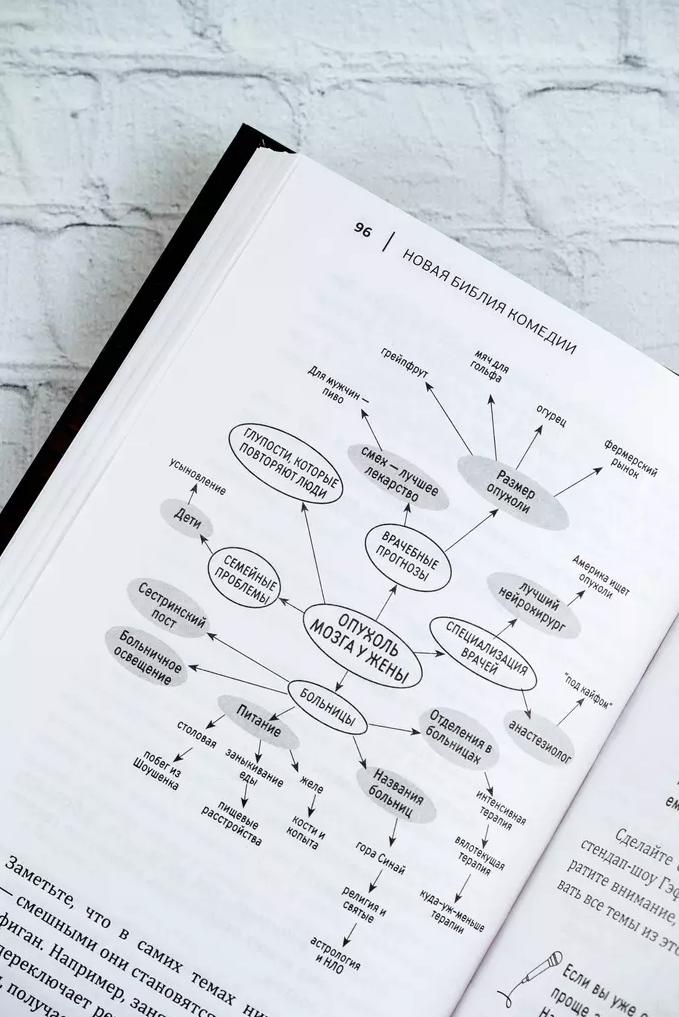 96 | НОВАЯ БИБЛИЯ КОМЕДИИ
грейпфрут
мяч для
гольфа
огурец
фермерский
рынок
Для мужчин —
пиво
ГЛУПОСТИ, КОТОРЫЕ
ПОВТОРЯЮТ ЛЮДИ
смех — лучшее
лекарство
Размер
опухоли
усыновление
Дети
СЕМЕЙНЫЕ
ПРОБЛЕМЫ
ВРАЧЕБНЫЕ
ПРОГНОЗЫ
лучший
нейрохирург
Америка ищет
опухоли
Сестринский
пост
Больничное
освещение
ОПУХОЛЬ
МОЗГА У ЖЕНЫ
СПЕЦИАЛИЗАЦИЯ
ВРАЧЕЙ
"под кайфом"
анастезиолог
БОЛЬНИЦЫ
Питание
Отделения в
больницах
Названия
больниц
столовая
побег из
Шоушенка
заныкивание
еды
пищевые
расстройства
желе
кости и
копыта
гора Синай
религия и
святые
астрология
и НЛО
интенсивная
терапия
вялотекущая
терапия
куда-уж-меньше
терапии
Заметьте, что в самих темах ни
— смешными они становятся
фиган. Например, заня
переключает ре
, получа
Сделайте
стендап-шоу Гэф
ратите внимание,
вать все темы из это
Если вы уже с
проще з
На